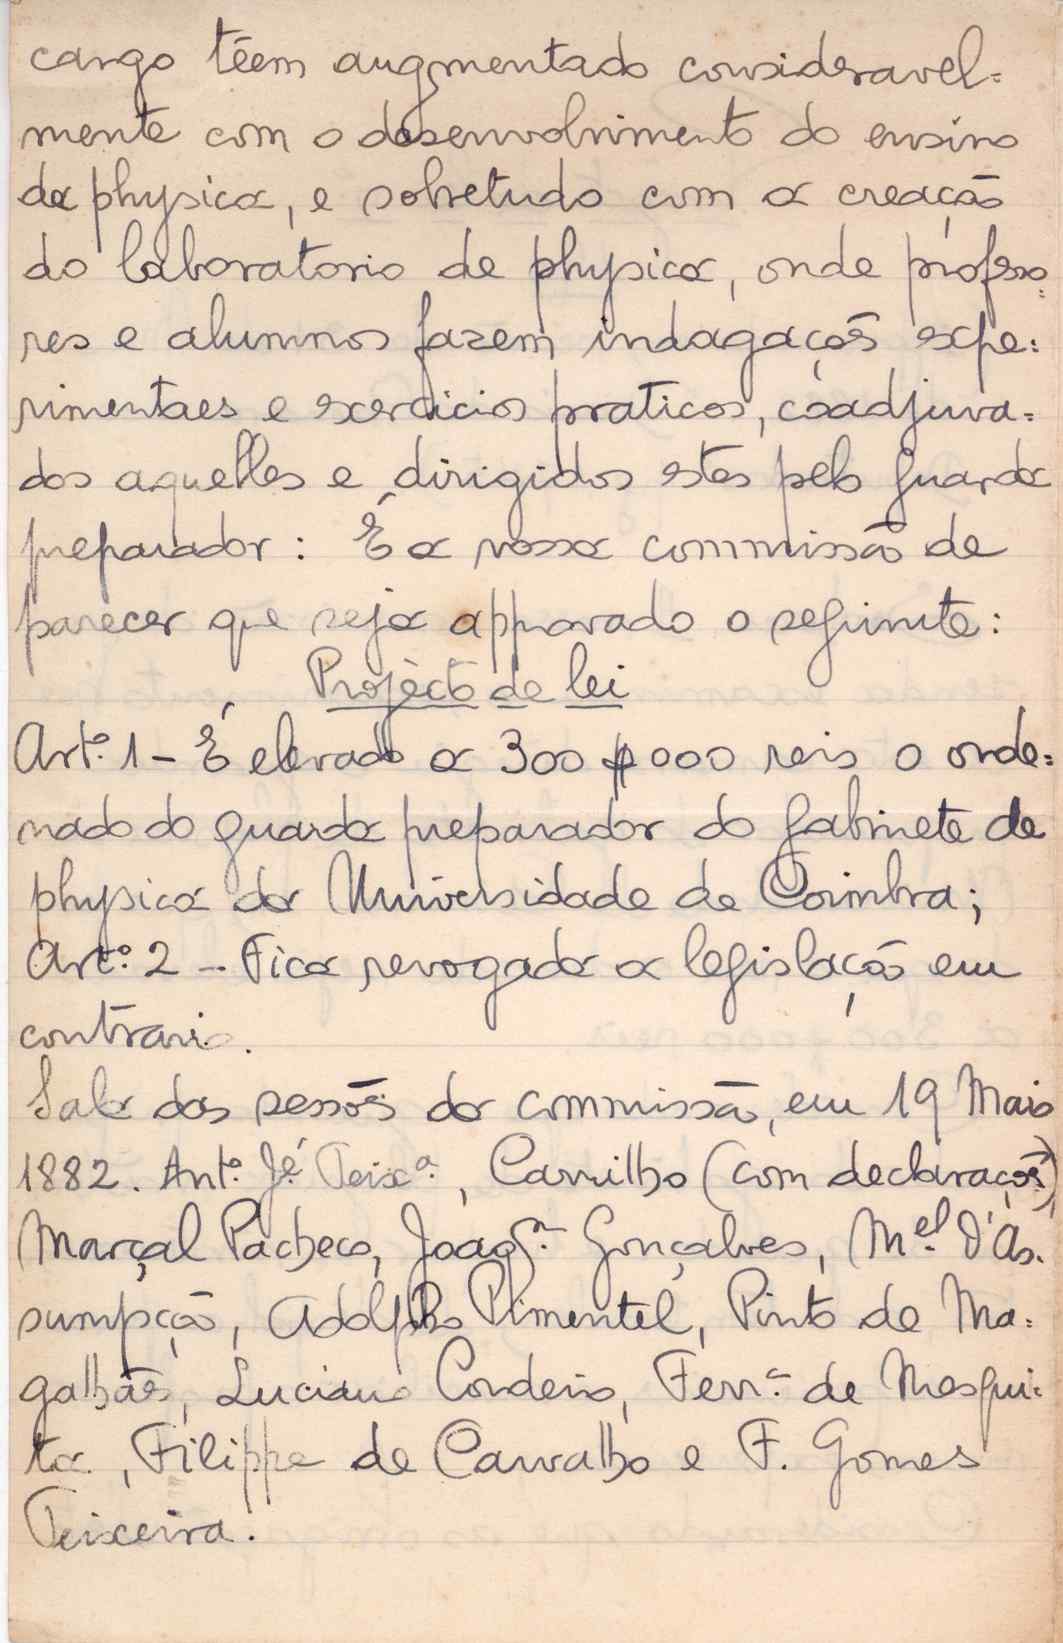 cargo têem augmentado consideravel=
mente com o desenvolvimento do ensino
da physica, e sobretudo com a creação
do laboratorio de physica, onde professo=
res e alumnos fazem indagações expe=
rimentaes e exercicios praticos, coadjuva=
dos aquelles e dirigidos estes pelo guarda
preparador: É a vossa commissão de
parecer que seja approvado o seguinte:
Projecto de lei
Art.º 1 - É elevado a 300$000 reis o orde=
nado do guarda preparador do gabinete de
physica da Universidade de Coimbra;
Art.º 2 - Fica revogada a legislação em
contrario.
Sala das sessões da commissão, em 19 Maio
1882. Ant.º J.é Teix.ª, Carrilho (com declarações),
Marçal Pacheco, Joaq.m Gonçalves, M.el d'As=
sumpção, Adolpho Pimentel, Pinto de Ma=
galhães, Luciano Cordeiro, Ferr.ª de Mesqui=
ta, Filippe de Carvalho e F. Gomes
Teixeira.